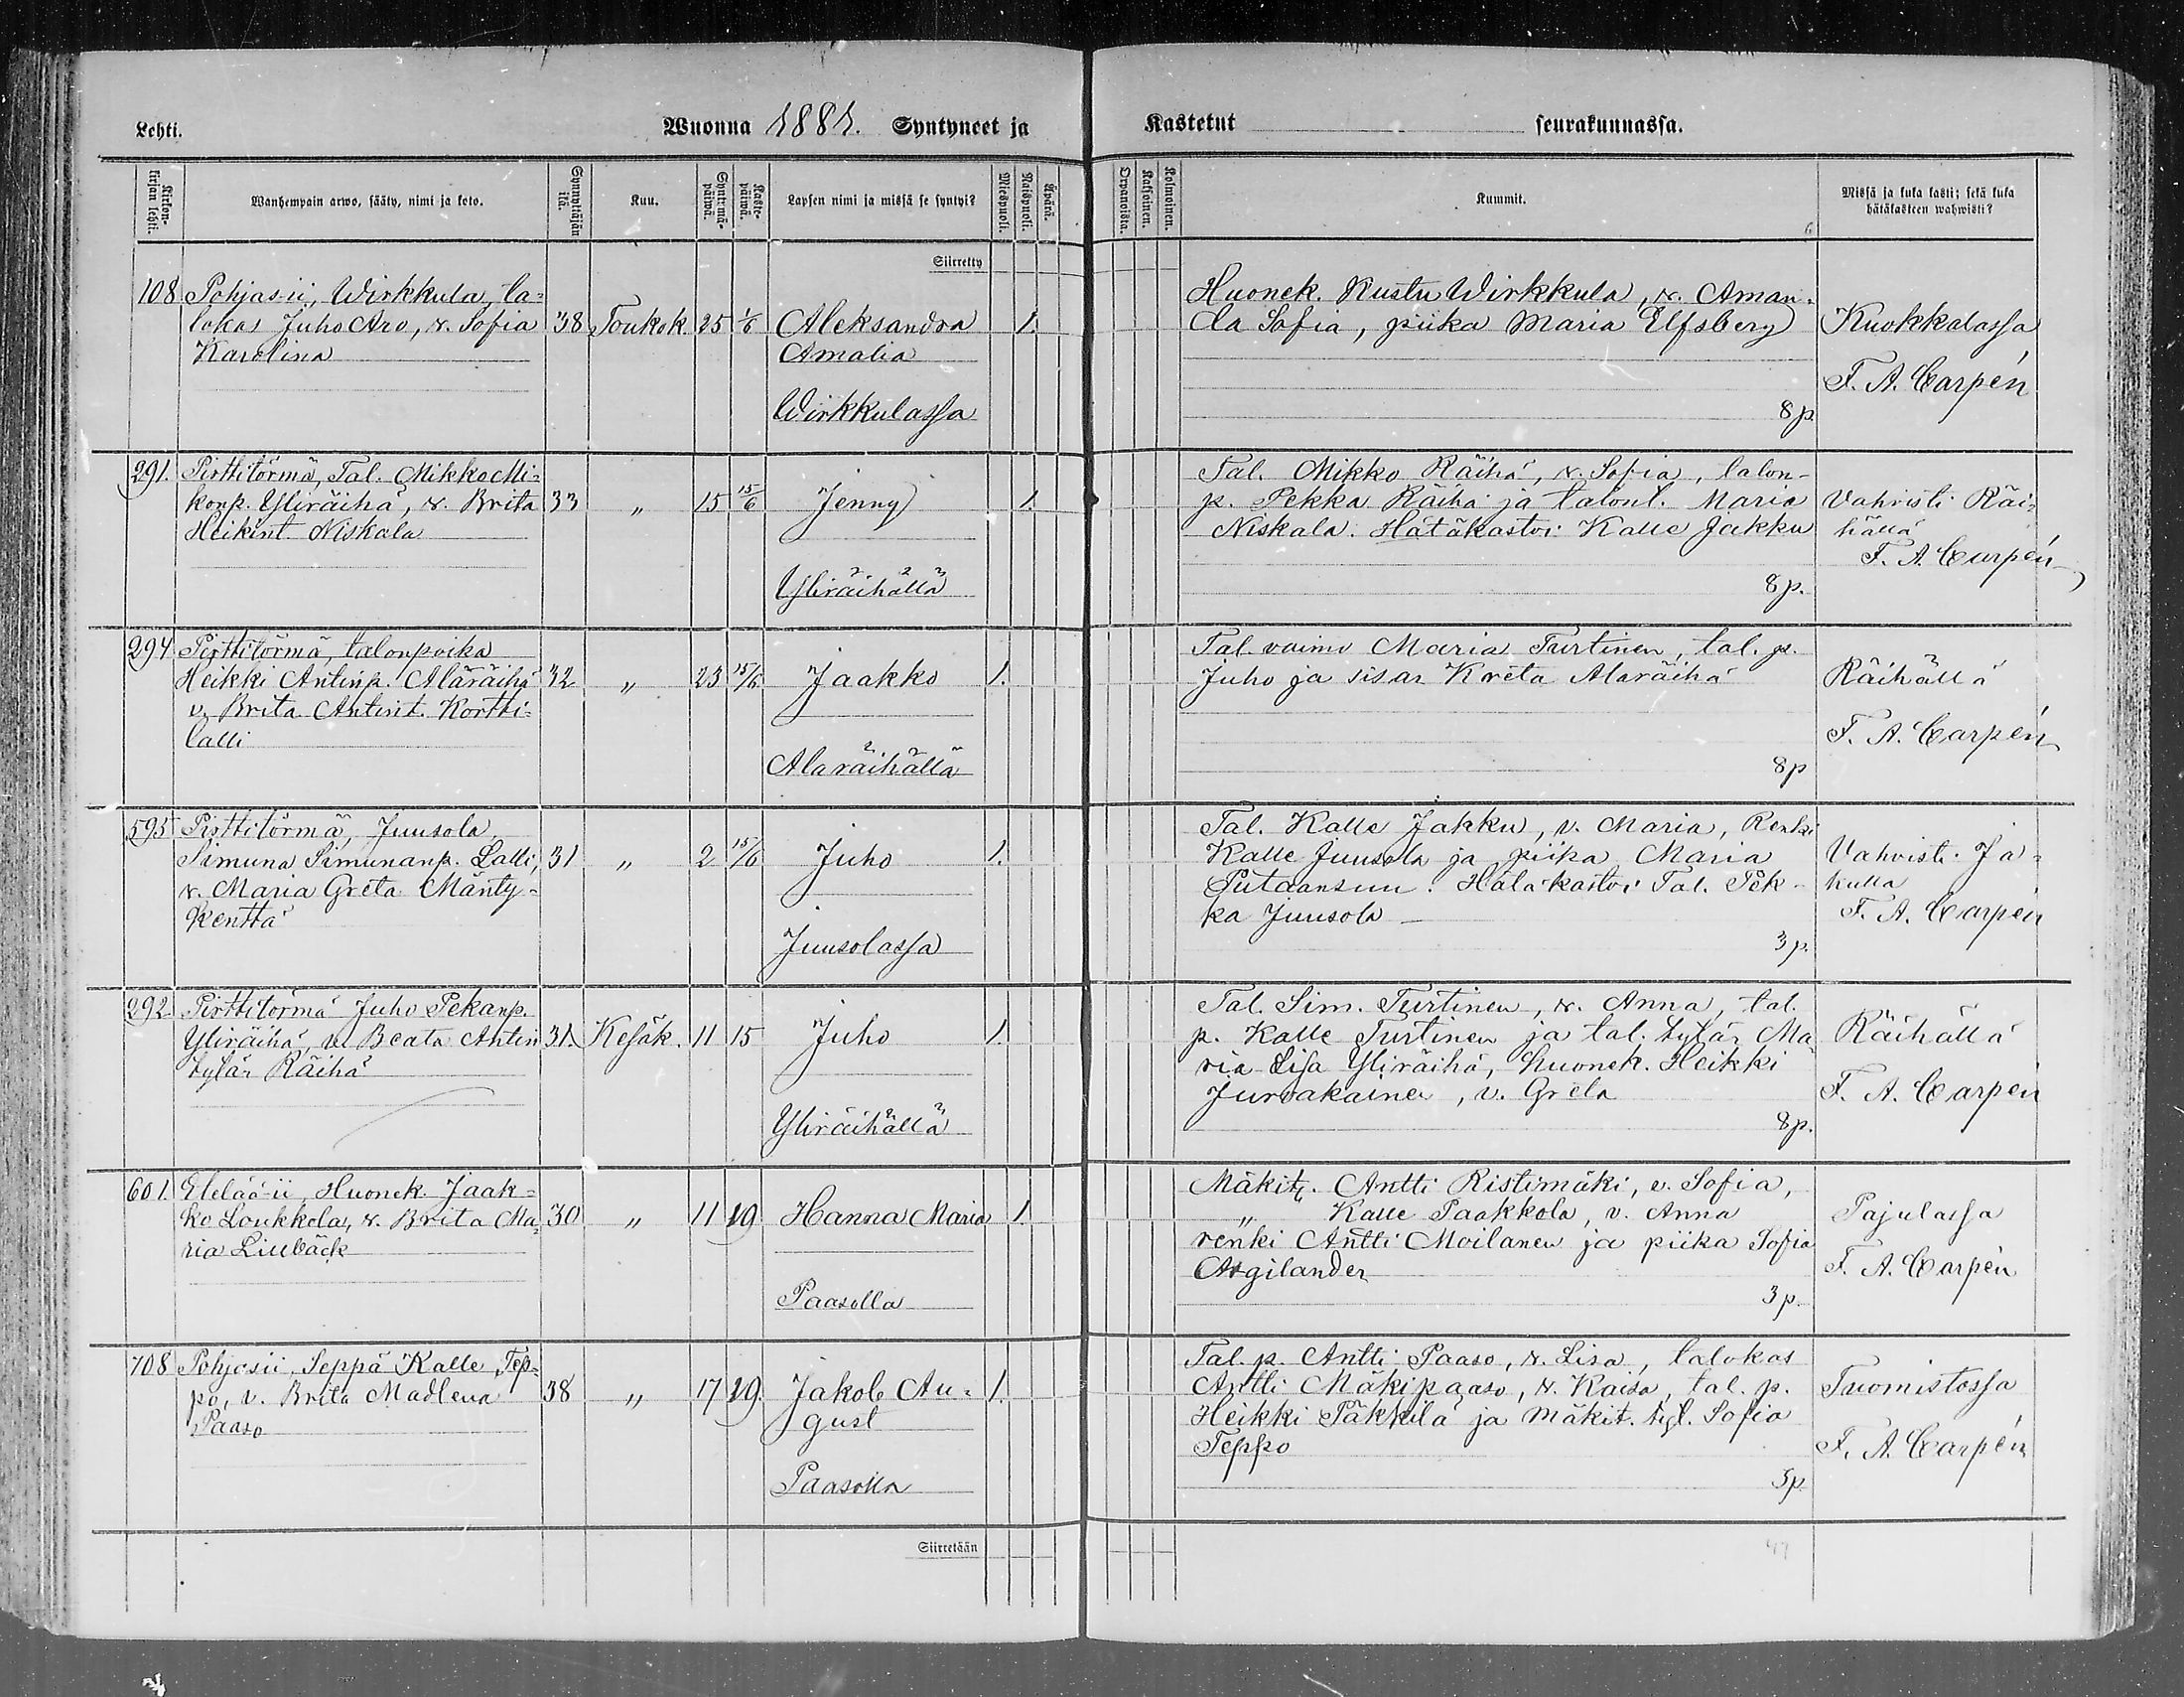 Lehti.
Wuonna 1881. Syntyneet ja
Kastetut seurakunnassa.
Kirkonkirjan lehti.
Wanhempain arwo, sääty, nimi ja koto.
Synnyttäjän ikä.
Kuu.
Syntymäpäiwä.
Kastepäiwä.
Lapsen nimi ja missä se syntyi?
Miespuoli.
Naispuoli.
Äpärä.
Orpanoista.
Kaksoinen.
Kolmoinen.
Kummit.
Missä ja kuka kasti; sekä kuka
hätäkasteen wahwisti?
Siirretty
108 Pohjas-ii, Wirkkula, ta=
lokas Juho Aro, v. Sofia
Karolina
38 Toukok. 25 1/6
Aleksandra
Amalia
Wirkkulassa
1.
Huonek. Kustu Wirkkula, v. Aman-
da Sofia, piika Maria Elfsberg
8 p.
Kuokkalassa
F. A. Carpén
291. Pirttitörmä, Tal. Mikko Mi=
konp. Yliräihä, v. Brita
Heikint. Niskala
33 „ 15 15/6
Jenny
Yliräihällä
1.
Tal. Mikko Räihä, v. Sofia, talon-
p. Pekka Räihä ja talont. Maria
Niskala. Hätäkastoi Kalle Jakku
8 p.
Vahvisti Räi=
hällä
F. A. Carpén
294 Pirttitörmä, talonpoika
Heikki Antinp. Alaräihä
v. Brita Antint. Kortti=
lalli
32 „ 23 15/6
Jaakko
Alaräihällä
1.
Tal. vaimo Maria Turtinen, tal. p.
Juho ja sisar Kreta Alaräihä
8 p
Räihällä
F. A. Carpén
595 Pirttitörmä, Juusola,
Simuna Simunanp. Lalli,
v. Maria Greta Mänty-
kenttä
31 „ 2 15/6
Juho
Juusolassa
1.
Tal. Kalle Jakku, v. Maria, Renki
Kalle Juusola ja piika Maria
Putaansuu. Hätäkastoi Tal. Pek-
ka Juusola
3 p.
Vahvisti Ja=
kulla
F. A. Carpén
292 Pirttitörmä Juho Pekanp.
Yliräihä, v. Beata Antin
tytär Räihä
31 Kesäk. 11 15
Juho
Yliräihällä
1.
Tal. Sim. Turtinen, v. Anna, tal.
p. Kalle Turtinen ja tal. tytär Ma
ria Lisa Yliräihä, huonek. Heikki
Jurvakainen, v. Greta
8 p.
Räihällä
F. A. Carpén
601. Etelää-ii, Huonek. Jaak=
ko Loukkola, v. Brita Ma=
ria Liubäck
30 „ 11 19
Hanna Maria
Paasolla
1.
Mäkit. Antti Ristimäki, v. Sofia,
„ Kalle Paakkola, v. Anna
renki Antti Moilanen ja piika Sofia
Argilander
3 p.
Pajulassa
F. A. Carpén
708 Pohjasii, Seppä Kalle Tep=
po, v. Brita Madlena
Paaso
38 „ 17 19.
Jakob Au=
gust
Paasolla
1.
Tal. p. Antti Paaso, v. Lisa, talokas
Antti Mäkipaaso, v. Kaisa, tal. p.
Heikki Täkkilä ja Mäkit. tyt. Sofia
Teppo
5 p.
Tuomistossa
F. A. Carpén
Siirretään
47